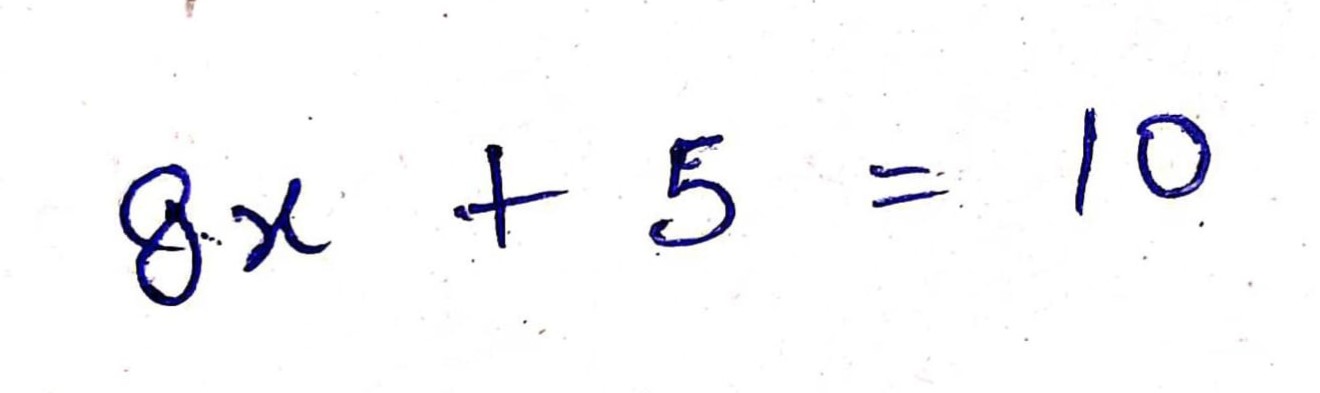 8x + 5 = 10